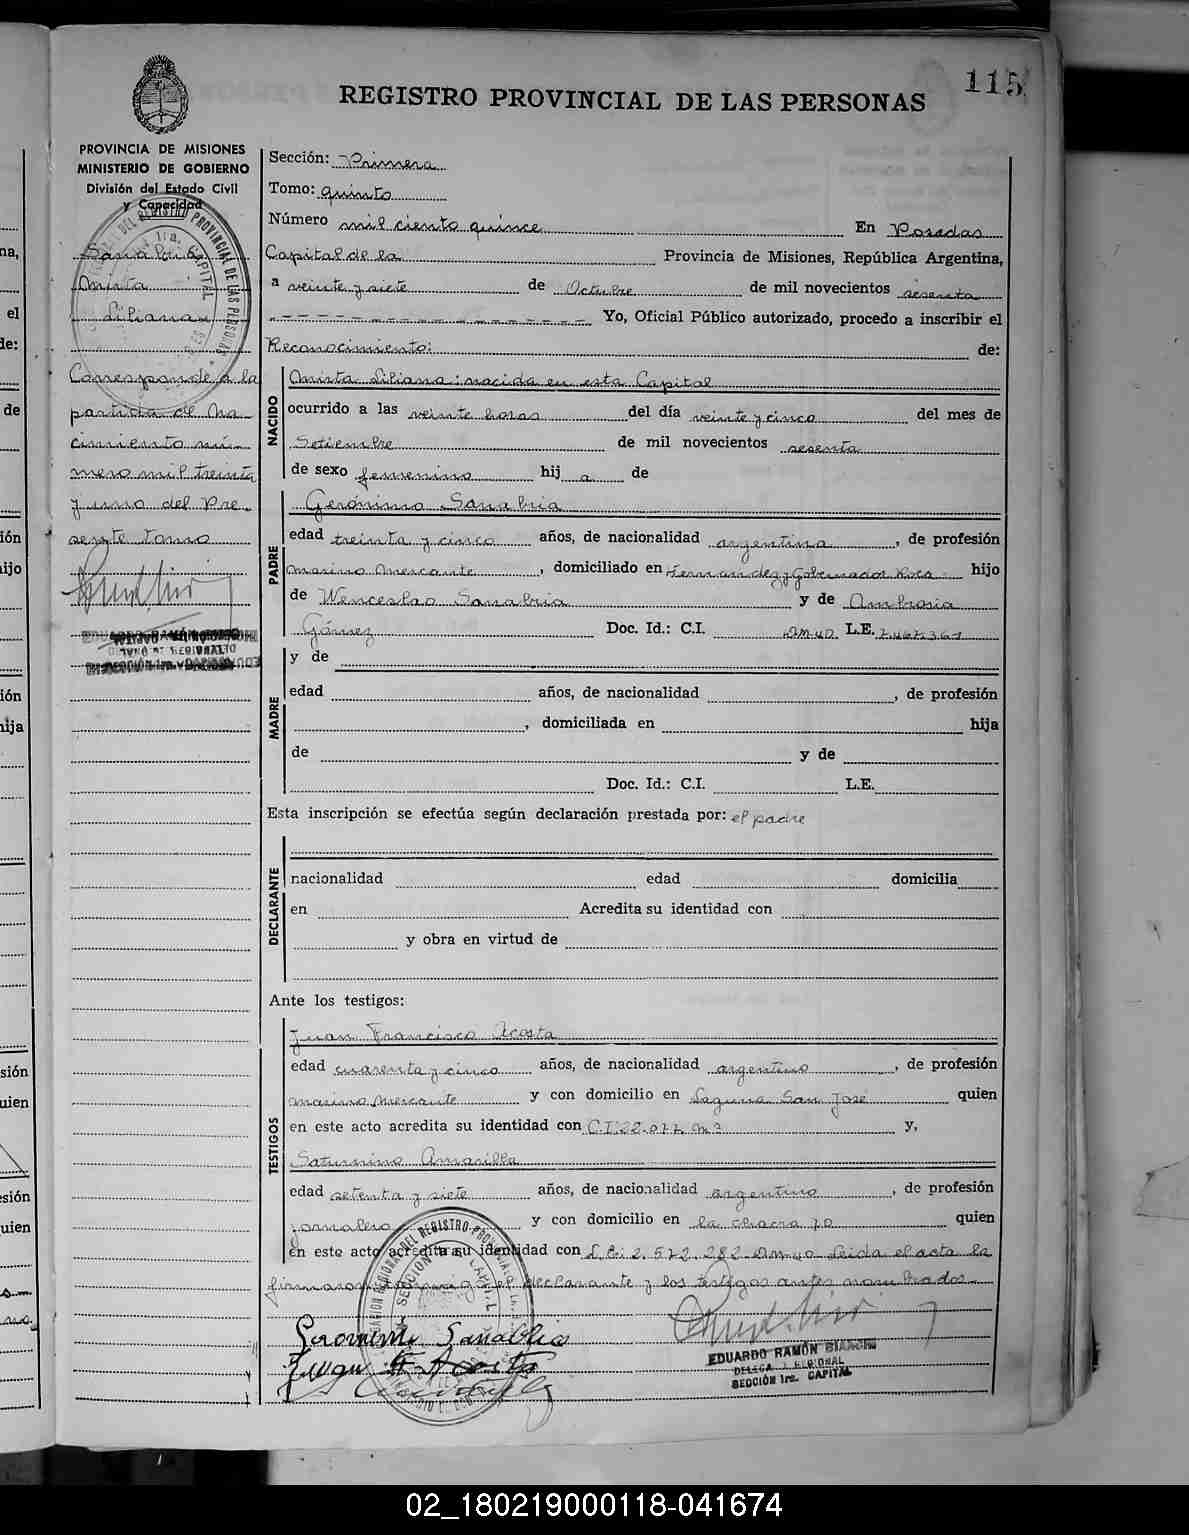 115
REGISTRO PROVINCIAL DE LAS PERSONAS
PROVINCIA DE MISIONES
MINISTERIO DE GOBIERNO
División del Estado Civil
y Capacidad
Sanabria
Mirta
Liliana
Corresponde a la
partida de Na-
cimiento nú-
mero mil treinta
y uno del Pre-
sente tomo
Sección: Primera
Tomo: quinto
Número mil ciento quince En Posadas
Capital de la Provincia de Misiones, República Argentina,
a veinte y siete de Octubre de mil novecientos sesenta
Yo, Oficial Público autorizado, procedo a inscribir el
Reconocimiento: de:
NACIDO
Mirta Liliana: nacida en esta Capital
ocurrido a las veinte horas del día veinte y cinco del mes de
Setiembre de mil novecientos sesenta
de sexo femenino hij a de
PADRE
Gerónimo Sanabria
edad treinta y cinco años, de nacionalidad argentina, de profesión
marino mercante, domiciliado en Hernandez y Gobernador Roca hijo
de Wenceslao Sanabria y de Ambrosia
Gómez Doc. Id.: C.I. L.E. 7.467.361
MADRE
y de
edad años, de nacionalidad , de profesión
, domiciliada en hija
de y de
Doc. Id.: C.I. L.E.
Esta inscripción se efectúa según declaración prestada por: el padre
DECLARANTE
nacionalidad edad domicilia
en Acredita su identidad con
y obra en virtud de
Ante los testigos:
TESTIGOS
Juan Francisco Acosta
edad cuarenta y cinco años, de nacionalidad argentino, de profesión
marino mercante y con domicilio en Laguna San José quien
en este acto acredita su identidad con C.I. 22.077 y,
Saturnino Amarilla
edad setenta y siete años, de nacionalidad argentino, de profesión
jornalero y con domicilio en la chacra 70 quien
en este acto acredita su identidad con L.E. 2.572.282 Leida el acta la
firmaron el declarante y los testigos antes nombrados
Geronimo Sanabria
Juan F. Acosta
EDUARDO RAMÓN BIANCHI
DELEGADO REGIONAL
SECCIÓN 1ra. CAPITAL
02_180219000118-041674